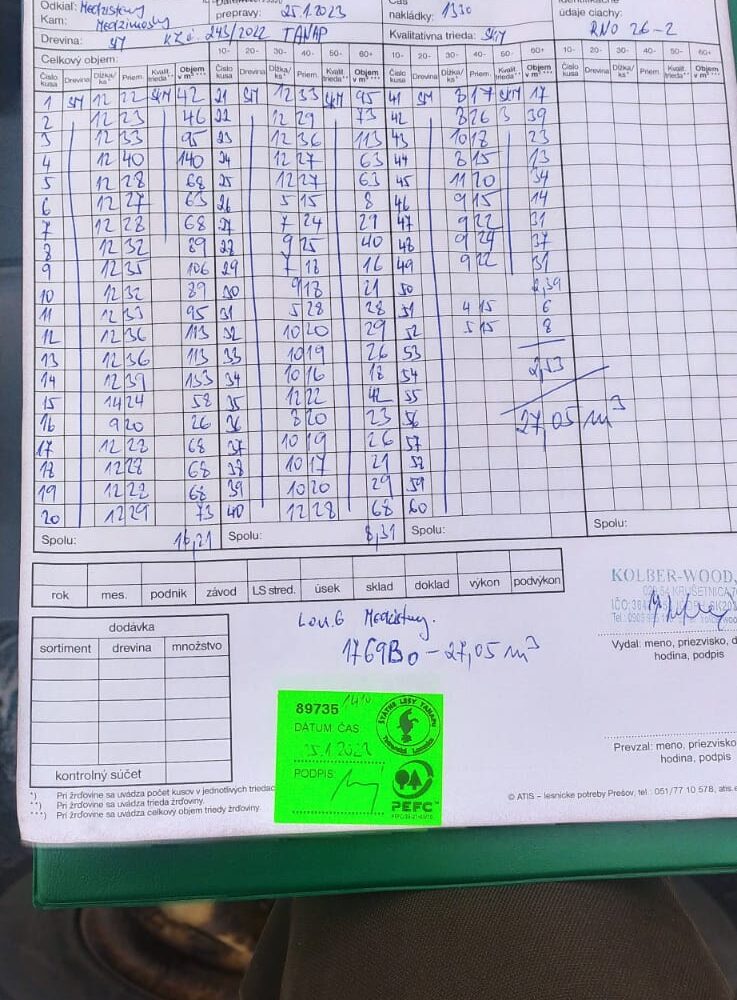 Odkiaľ: Medzisteny
prepravy: 25.1.2023
nakládky: 1330
údaje ciachy:
Kam:
RNO 26-2
Drevina: 47 KZč. 243/2022 TANAP
Kvalitatívna trieda: SKY
Celkový objem: 10- 20- 30- 40- 50- 60+ 10- 20- 30- 40- 50- 60+ 10- 20- 30- 40- 50- 60+
Číslo kusa Drevina Dĺžka/ks* Priem. Kvalit. trieda** Objem v m³*** Číslo kusa Drevina Dĺžka/ks* Priem. Kvalit. trieda** Objem v m³*** Číslo kusa Drevina Dĺžka/ks* Priem. Kvalit. trieda** Objem v m³***
1 SM 12 22 SKM 42 21 SM 12 33 SKM 95 41 SM 8 17 SKM 17
2 12 23 46 22 12 29 73 42 8 26 3 39
3 12 33 95 23 12 36 113 43 10 18 23
4 12 40 140 24 12 27 63 44 8 15 13
5 12 28 68 25 12 27 63 45 11 20 34
6 12 27 63 26 5 15 8 46 9 15 14
7 12 28 68 27 7 24 29 47 9 22 31
8 12 32 89 28 9 25 40 48 9 24 37
9 12 35 106 29 7 18 16 49 9 22 31
10 12 32 89 30 9 18 21 50 2,39
11 12 33 95 31 5 28 28 51 4 15 6
12 12 36 113 32 10 20 29 52 5 15 8
13 12 36 113 33 10 19 26 53
14 12 39 133 34 10 16 18 54 2,53
15 14 24 58 35 12 22 42 55
16 9 20 26 36 8 20 23 56 27,05 m³
17 12 28 68 37 10 19 26 57
18 12 28 68 38 10 17 21 58
19 12 28 68 39 10 20 29 59
20 12 29 73 40 12 28 68 60
Spolu: 16,21 Spolu: 8,31 Spolu: Spolu:
rok mes. podnik závod LS stred. úsek sklad doklad výkon podvýkon
KOLBER-WOOD,
dodávka
sortiment drevina množstvo
Lou.6 Medzisteny.
1769Bo - 27,05 m³
Vydal: meno, priezvisko, d
hodina, podpis
89735 1410
DÁTUM ČAS
25.1.2023
PODPIS
ŠTÁTNE LESY TANAPU
Tatranská Lomnica
PEFC™
Prevzal: meno, priezvisko
hodina, podpis
kontrolný súčet
*) Pri žrďovine sa uvádza počet kusov v jednotlivých triedac
**) Pri žrďovine sa uvádza trieda žrďoviny.
***) Pri žrďovine sa uvádza celkový objem triedy žrďoviny.
© ATIS – lesnícke potreby Prešov, tel.: 051/77 10 578, atis.e